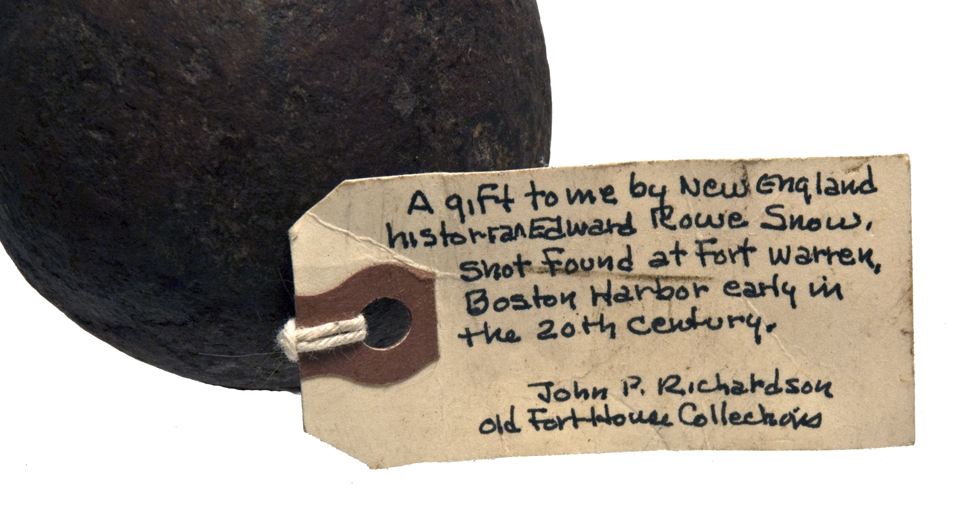 A gift to me by New England
historian Edward Rowe Snow.
Shot found at Fort Warren,
Boston Harbor early in
the 20th Century.
John P. Richardson
Old Fort House Collections